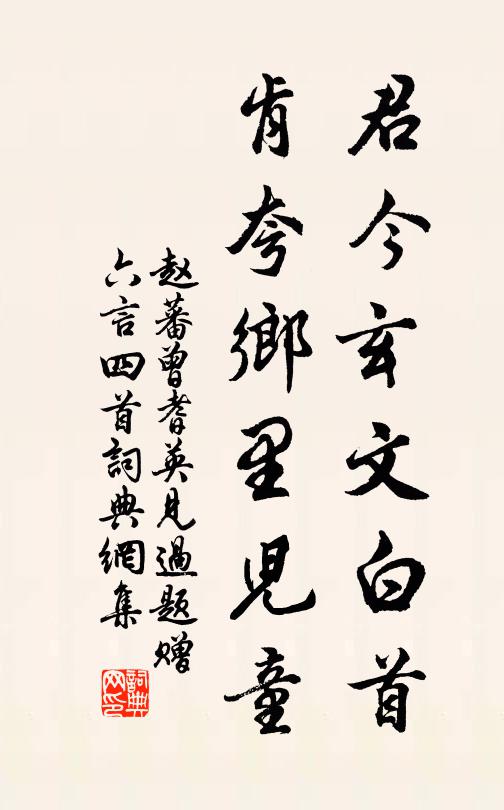 君今玄文白首
肯夸鄉里児童
赵蕃曾耆英見過题赠
六言四首詞典網集
詞典网印